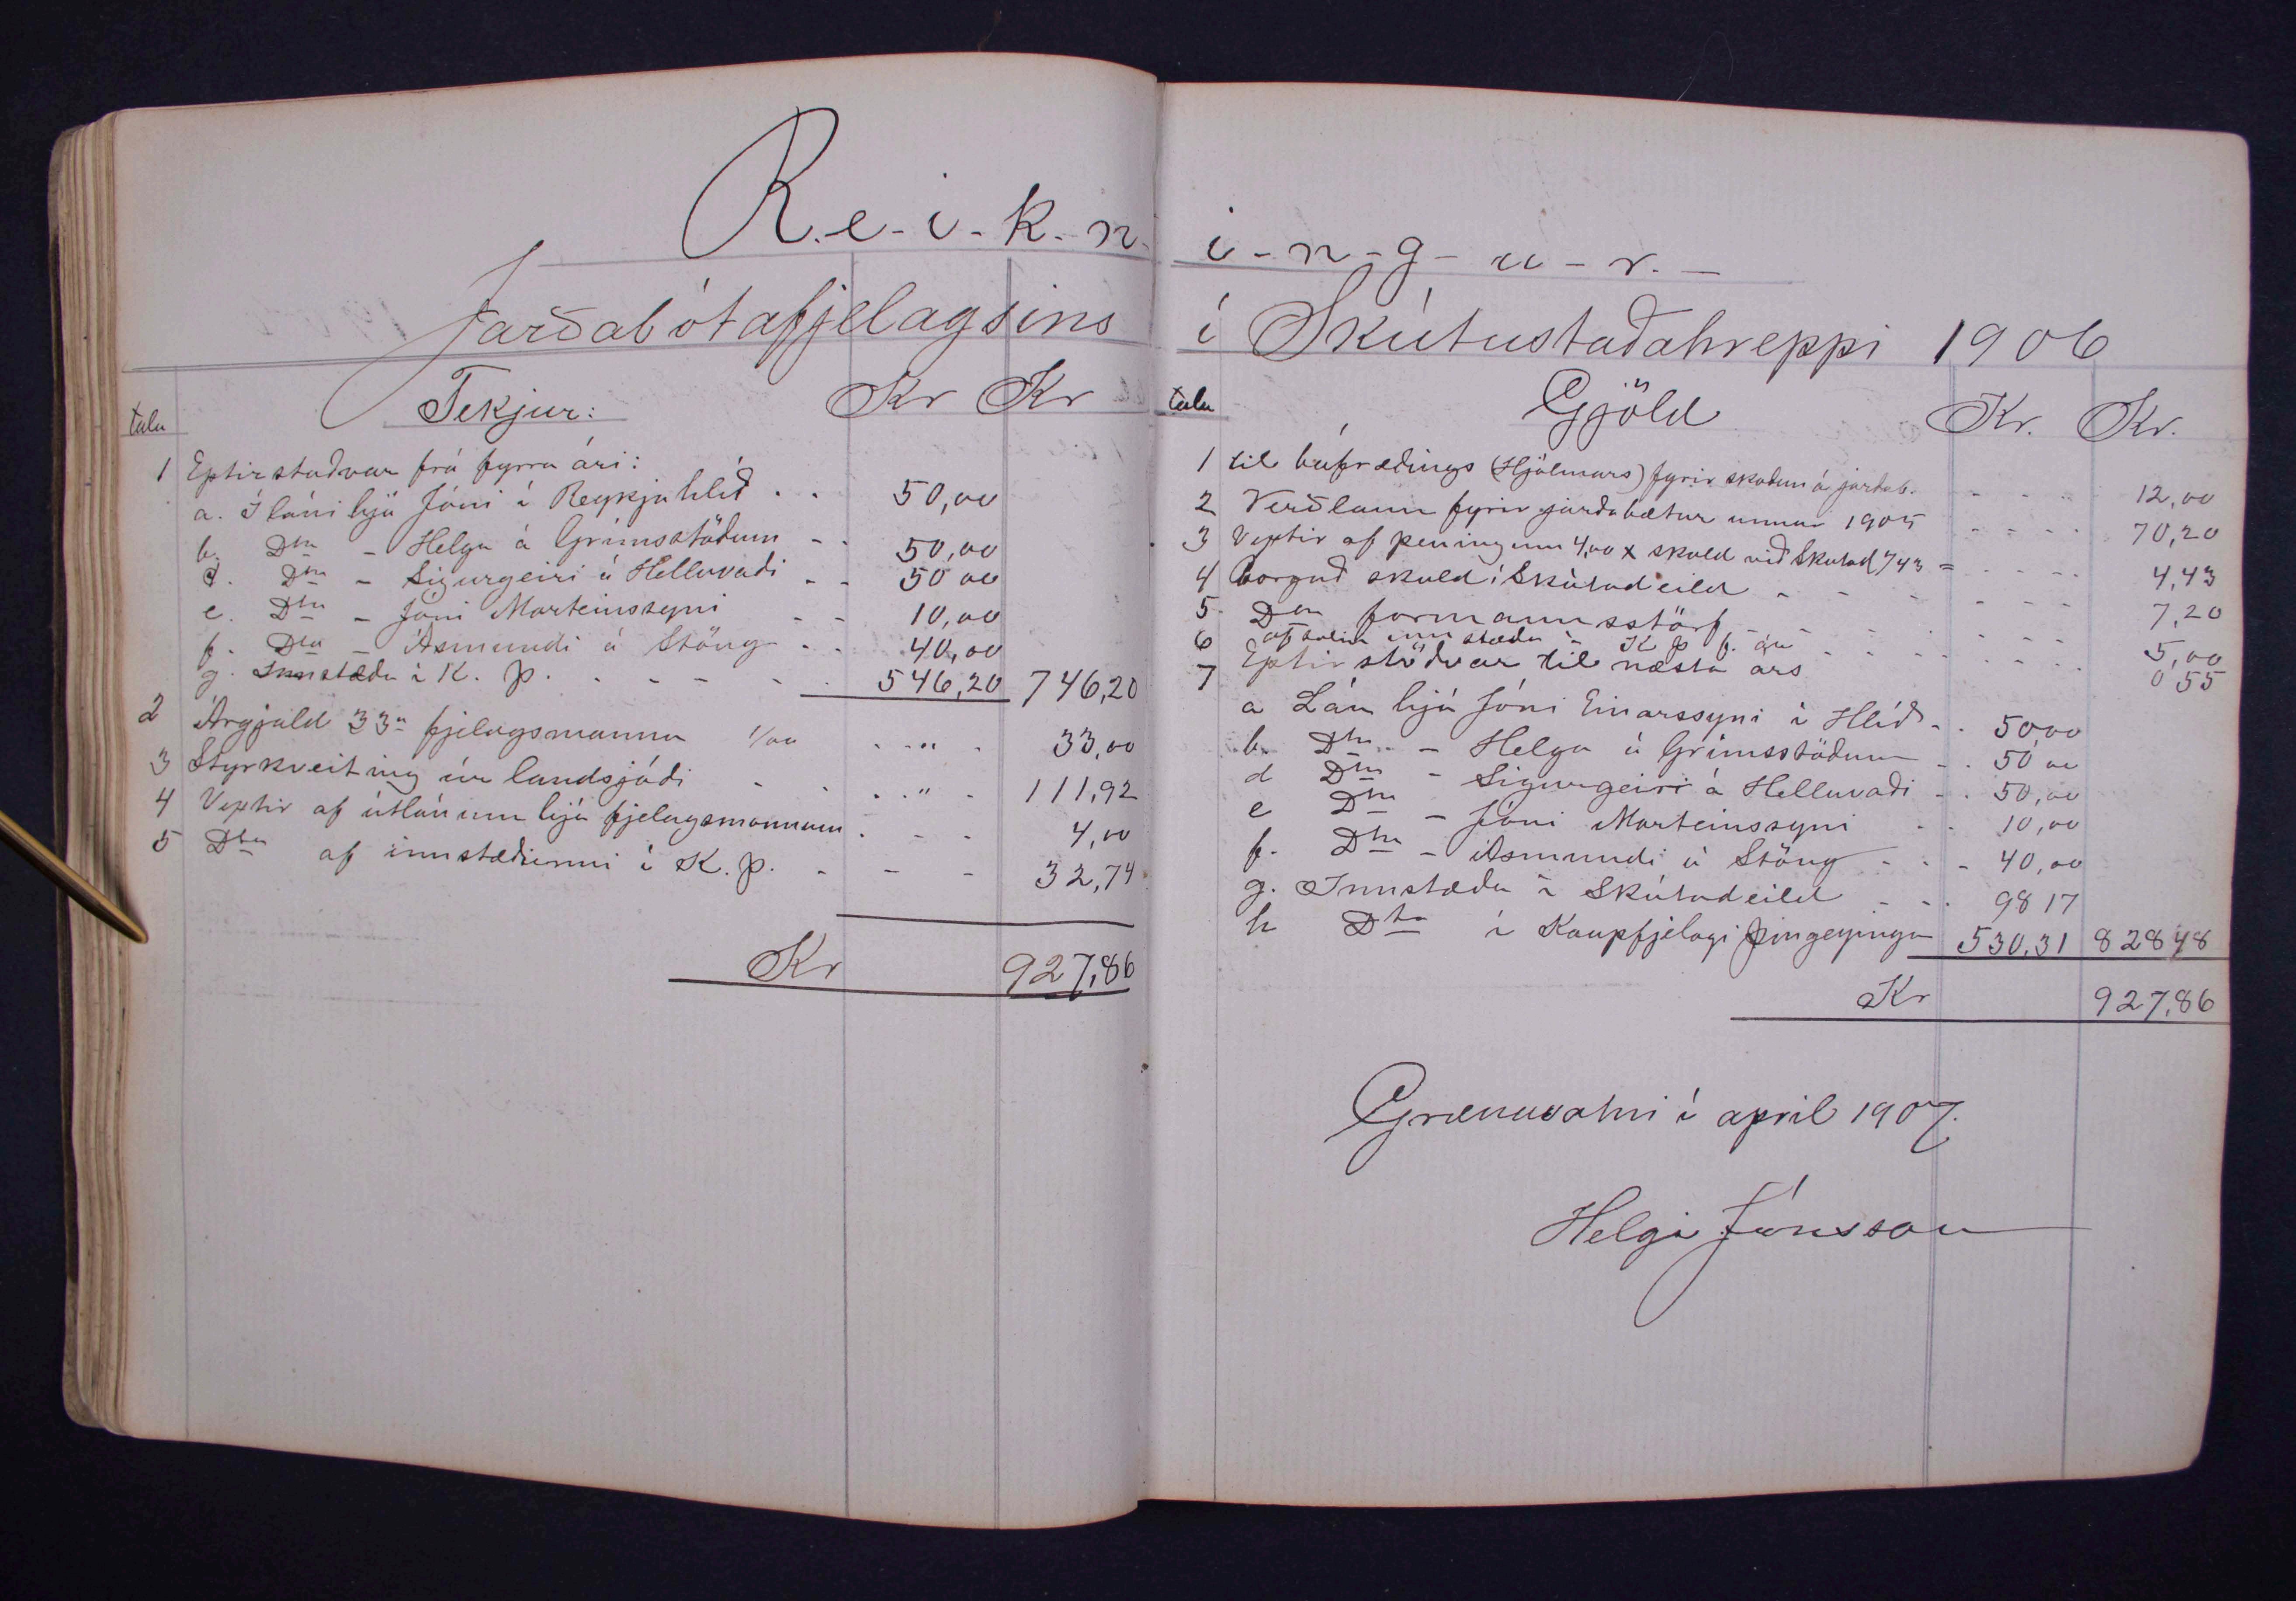 R.e-i-k-n-
Jarðabótafjelagsins
tala Tekjur: Kr Kr
1 Eptirstaðvar frá fyrra ári:
a. Í láni hjá Jóni í Reykjahlíð . . 50,00
b. Dto - Helga á Grímsstöðum - . 50,00
d. Dto - Sigurgeiri á Helluvaði - - 50 00
e. Dto - Jóni Marteinssyni - - 10,00
f. Dto - Ásmundi á Stöng - . 40,00
g. Innstæða í K. Þ. - - - - . 546,20 746,20
2 Árgjald 33a fjelagsmanna 1/00 . . " - 33,00
3 Styrkveiting úr landsjóði - . . . " - 111,92
4 Vextir af útlánum hjá fjelagsmönnum . - - 4,00
5 Dto af innstæðunni í K. Þ. - - - 32,74
Kr 927,86
i-n-g-u-r.-
í Skútustaðahreppi 1906
tala Gjöld Kr. Kr.
1 til búfræðings (Hjálmars) fyrir skoðun á jarðab. - - - - 12,00
2 Verðlaun fyrir jarðabætur unnar 1905 - - - - 70,20
3 Vextir af peningum 4,00 x skuld við Skútud 743 = - - - 4,43
4 borguð skuld í Skútudeild - - - - - - 7,20
5 Dto formannsstörf - - - - - - 5,00
6 innstæðu í K Þ f. ár - - - - - - 0 55
7 Eptirstöðvar til næsta árs
a Lán hjá Jóni Einarssyni í Hlíð - . 50,00
b. Dto - Helga á Grímsstöðum - . 50 00
d Dto - Sigurgeiri á Helluvaði - . 50,00
e Dto - Jóni Marteinssyni . . 10,00
f. Dto - Ásmundi á Stöng - - - 40,00
g. Innstæða í Skútudeild - - . 98 17
h Dto í Kaupfjelagi Þingeyinga 530,31 828 48
Kr 927,86
Grænavatni í april 1907.
Helgi Jónsson